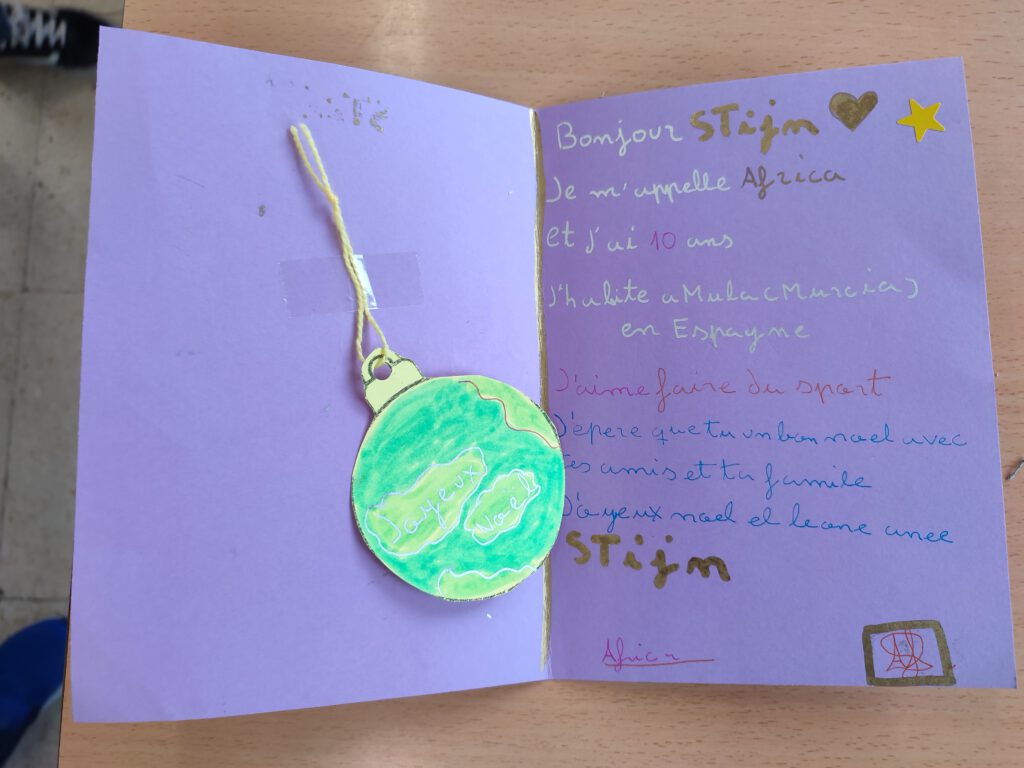 Joyeux
Noel
Bonjour STijn
Je m'appelle Africa
et J'ai 10 ans
J'habite a Mula (Murcia)
en Espagne
J'aime faire du sport
J'épere que tu un bon noel avec
tes amis et ta famile
Jóyeux noel et leone anee
STijn
Africa